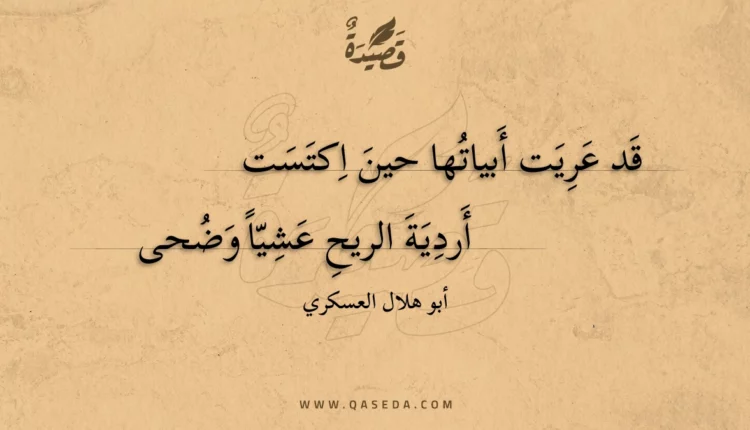 قَصِيْدَةٌ
قَد عَرِيَت أَبياتُها حينَ اِكتَسَت
أَردِيَةَ الريحِ عَشِيّاً وَضُحى
أبو هلال العسكري
WWW.QASEDA.COM